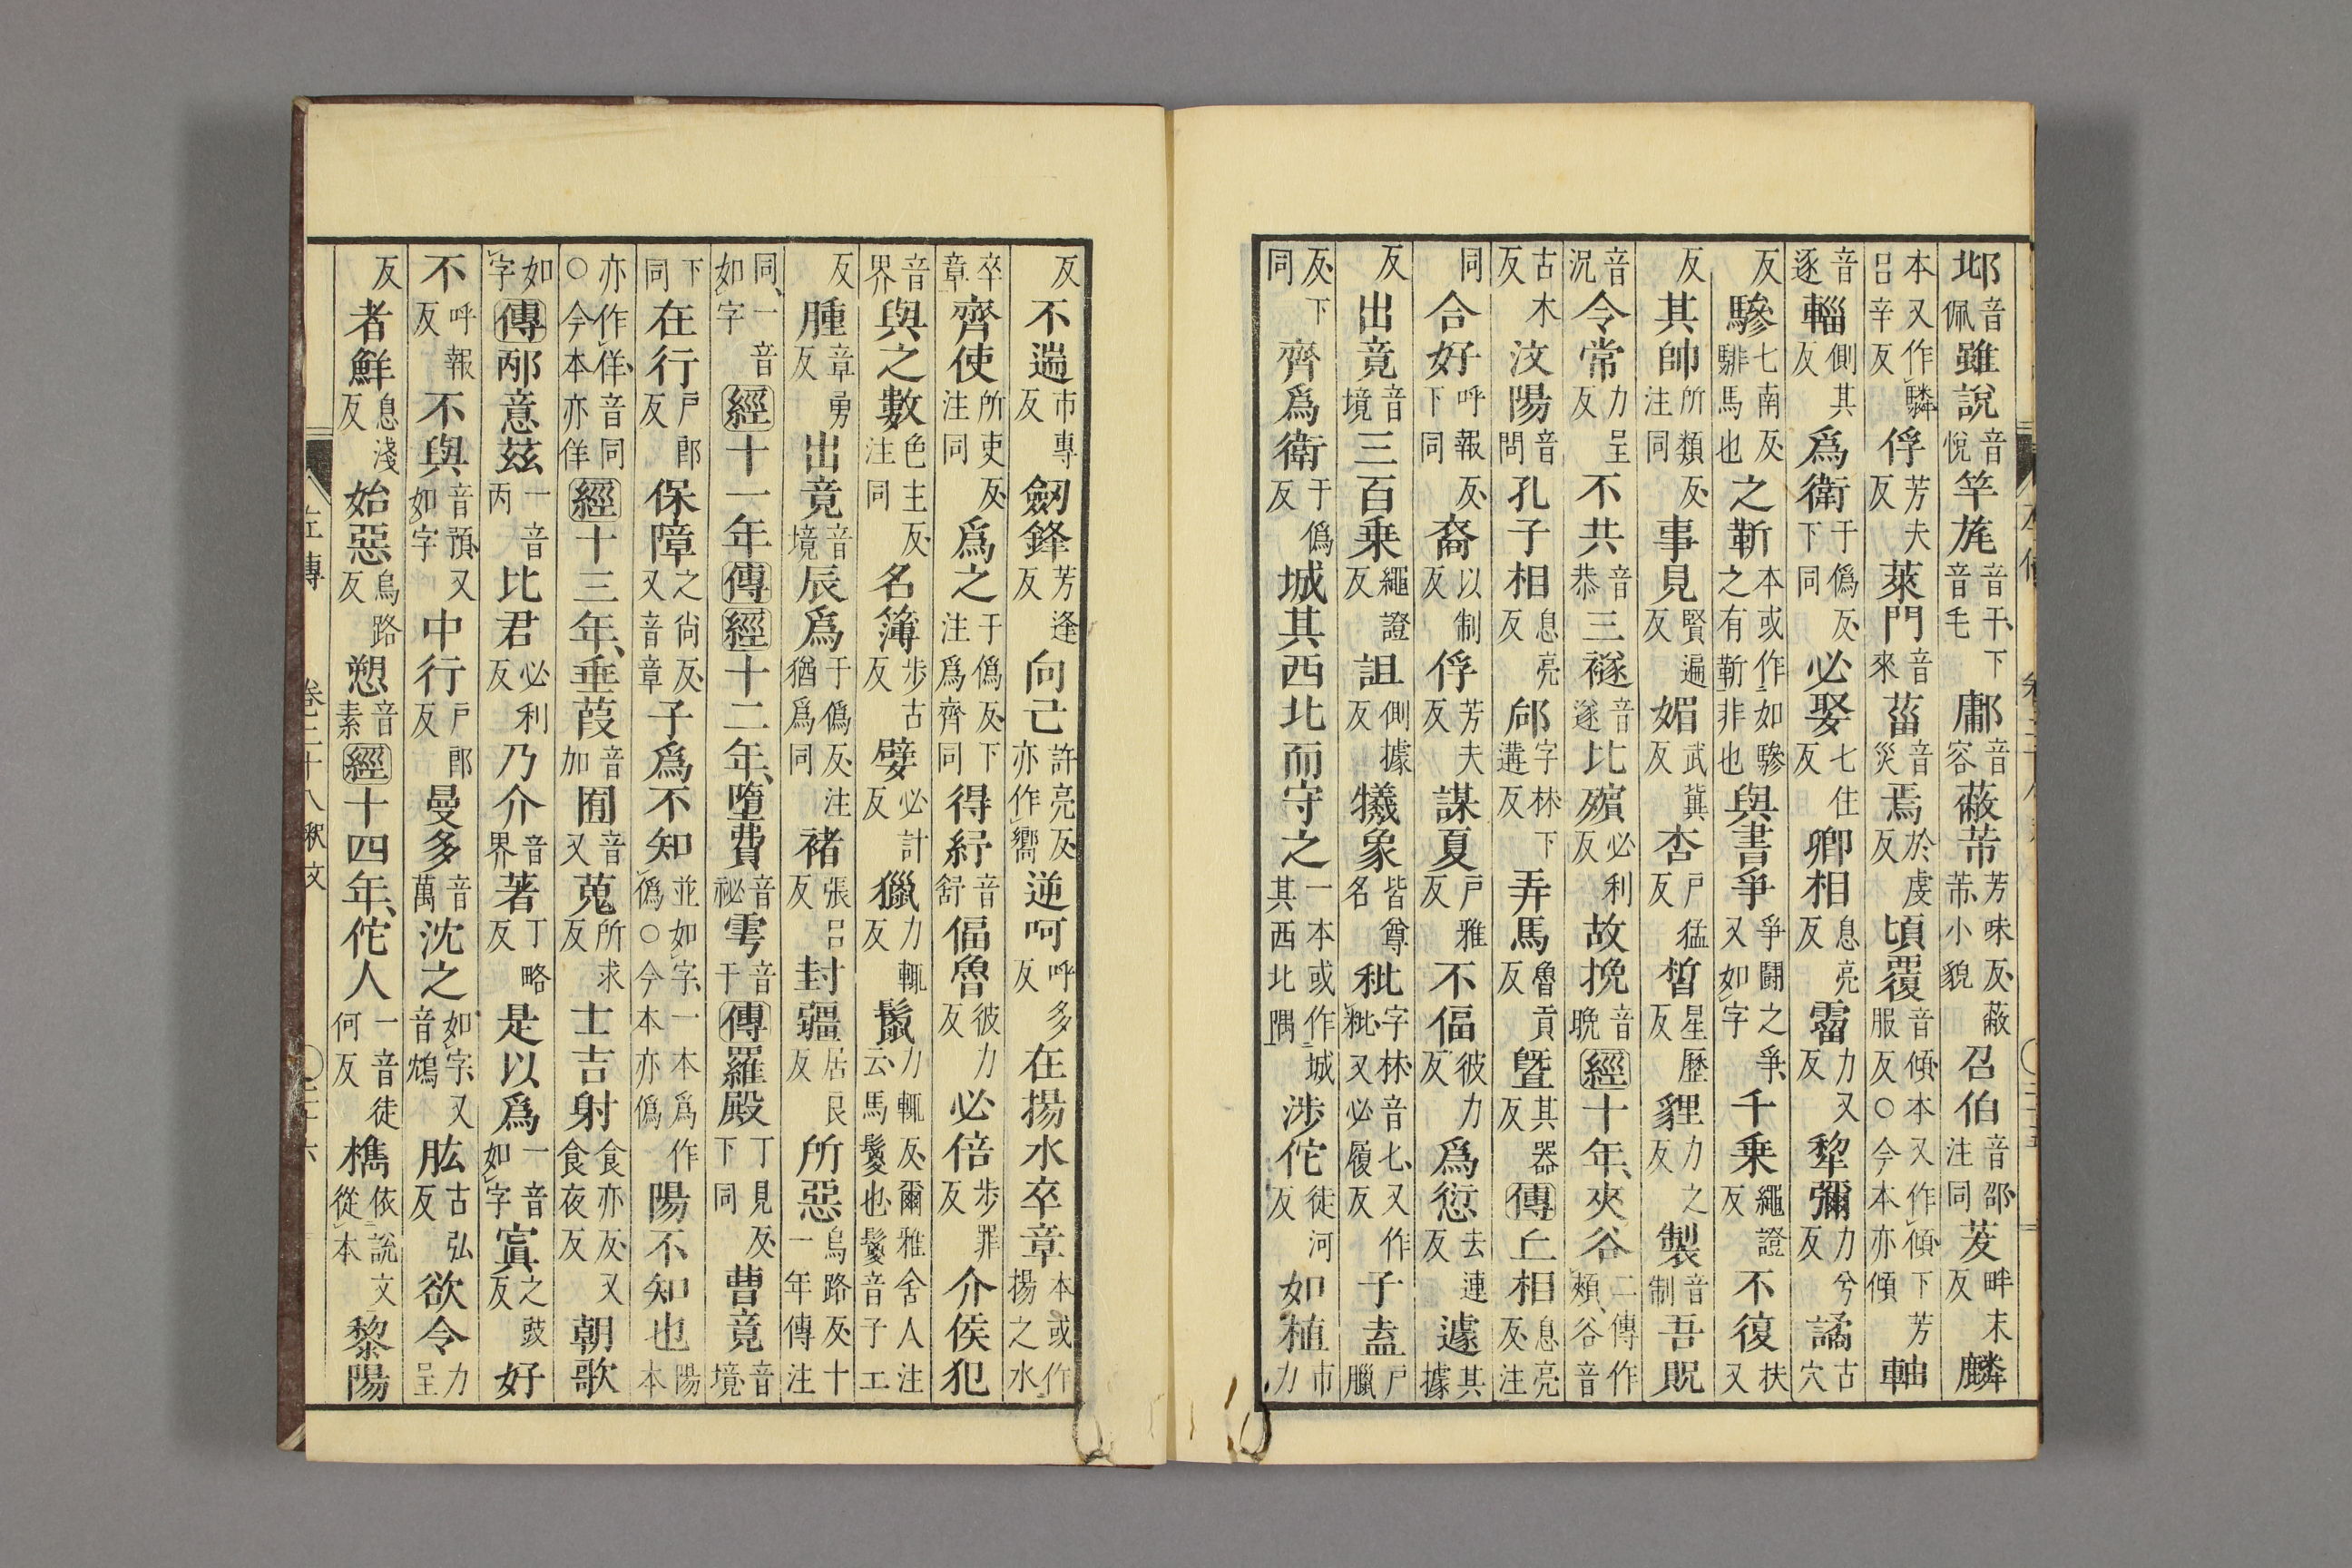 邶音佩雖說音悅竿旄音干下音毛鄘音容蔽芾芳味反蔽芾小貌召伯音邵注同茇畔末反麟
本又作驎呂辛反俘芳夫反萊門音來菑音災焉於虔反頃覆音傾本又作傾下芳服反○今本亦傾軸
音逐輜側其反爲衛于僞反下同必娶七住反卿相息亮反霤力又反犂彌力兮反譎古穴
反驂七南反騑馬也之靳本或作如驂之有靳非也與書爭爭鬭之爭又如字千乗繩證反不復扶又
反其帥所類反注同事見賢遍反媚武冀反杏戶猛反皙星歷反貍力之反製音制吾貺
音況令常力呈反不共音恭三襚音遂比殯必利反故挽音晩經十年夾谷二傳作頰谷音
古木反汶陽音問孔子相息亮反郈字林下遘反弄馬魯貢反曁其器反傳丘相息亮反注
同合好呼報反下同裔以制反俘芳夫反謀夏戶雅反不偪彼力反爲愆去連反遽其據
反出竟音境三百乗繩證反詛側據反犧象皆尊名秕字林音匕又作粃又必履反子盍戶臘
反下同齊爲衛于僞反城其西北而守之一本或作城其西北隅涉佗徒河反如植市力
反不遄市專反劒鋒芳逢反向己許亮反亦作嚮逆呵呼多反在揚水卒章本或作揚之水
卒章齊使所吏反注同爲之于僞反下注爲齊同得紓音舒偪魯彼力反必倍步罪反介侯犯
音界與之數色主反注同名簿步古反嬖必計反獵力輒反鬛力輒反爾雅舍人注云馬鬉也鬉音子工
反腫章勇反出竟音境辰爲于僞反注猶爲同褚張呂反封疆居良反所惡烏路反十一年傳注
同一音如字經十一年傳經十二年墮費音祕雩音于傳羅殿丁見反下同曹竟音境
下同在行戶郎反保障之尙反又音章子爲不知並如字一本爲作僞○今本亦僞陽不知也陽本
亦作佯音同○今本亦佯經十三年垂葭音加囿音又蒐所求反士吉射食亦反又食夜反朝歌
如字傳邴意茲一音丙比君必利反乃介音界著丁略反是以爲一音如字寘之豉反好
不呼報反不與音預又如字中行戶郎反曼多音萬沈之如字又音鴆肱古弘反欲令力呈
反者鮮息淺反始惡烏路反愬音素經十四年佗人一音徒何反檇依說文從本黎陽
左傳 卷二十八釋文